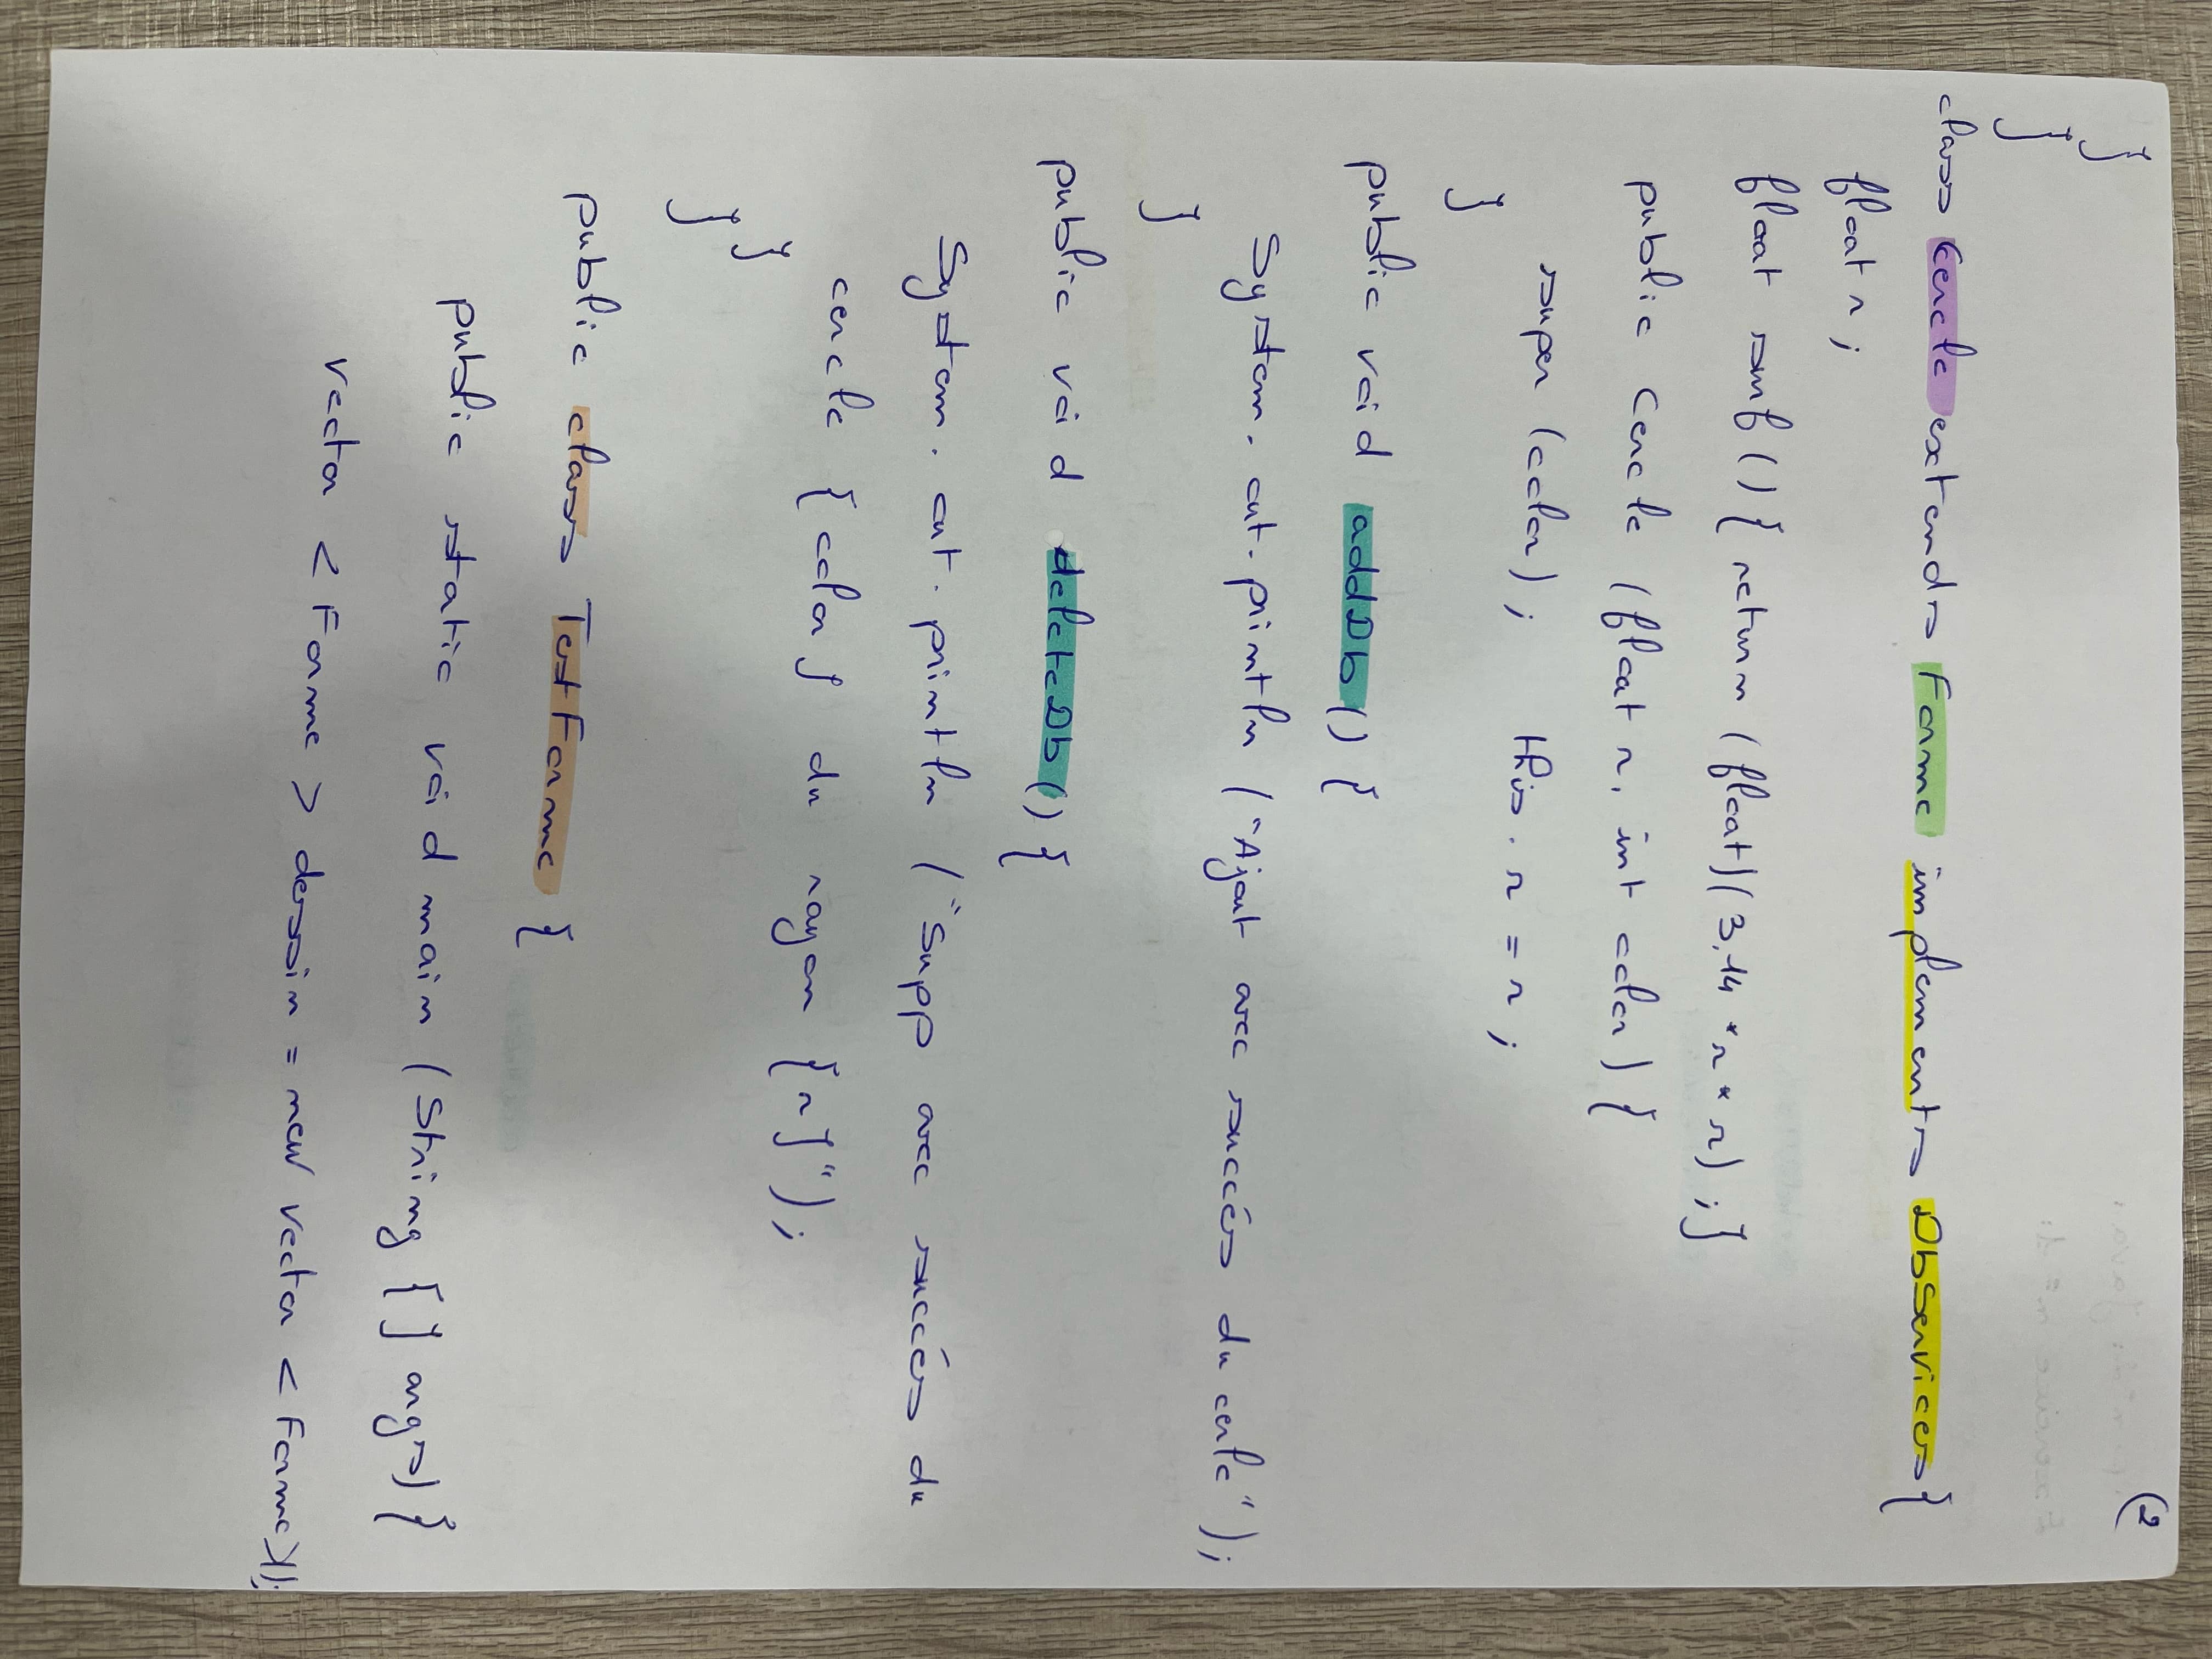 (2
}
}
class Cercle extends Forme implements Dbservices{
float r;
float surf(){ return (float)(3,14 * r * r);}
public Cercle (float r, int color) {
super (color); this.r = r;
}
public void addDb() {
System.out.println ("Ajout avec succés du cerle");
}
public void deleteDb() {
System.out.println ("Supp avec succés du
cercle {color} du rayon {r}");
}
}
public class TestForme {
public static void main (String [] args) {
vector < Forme > dessin = new vector < Forme>();